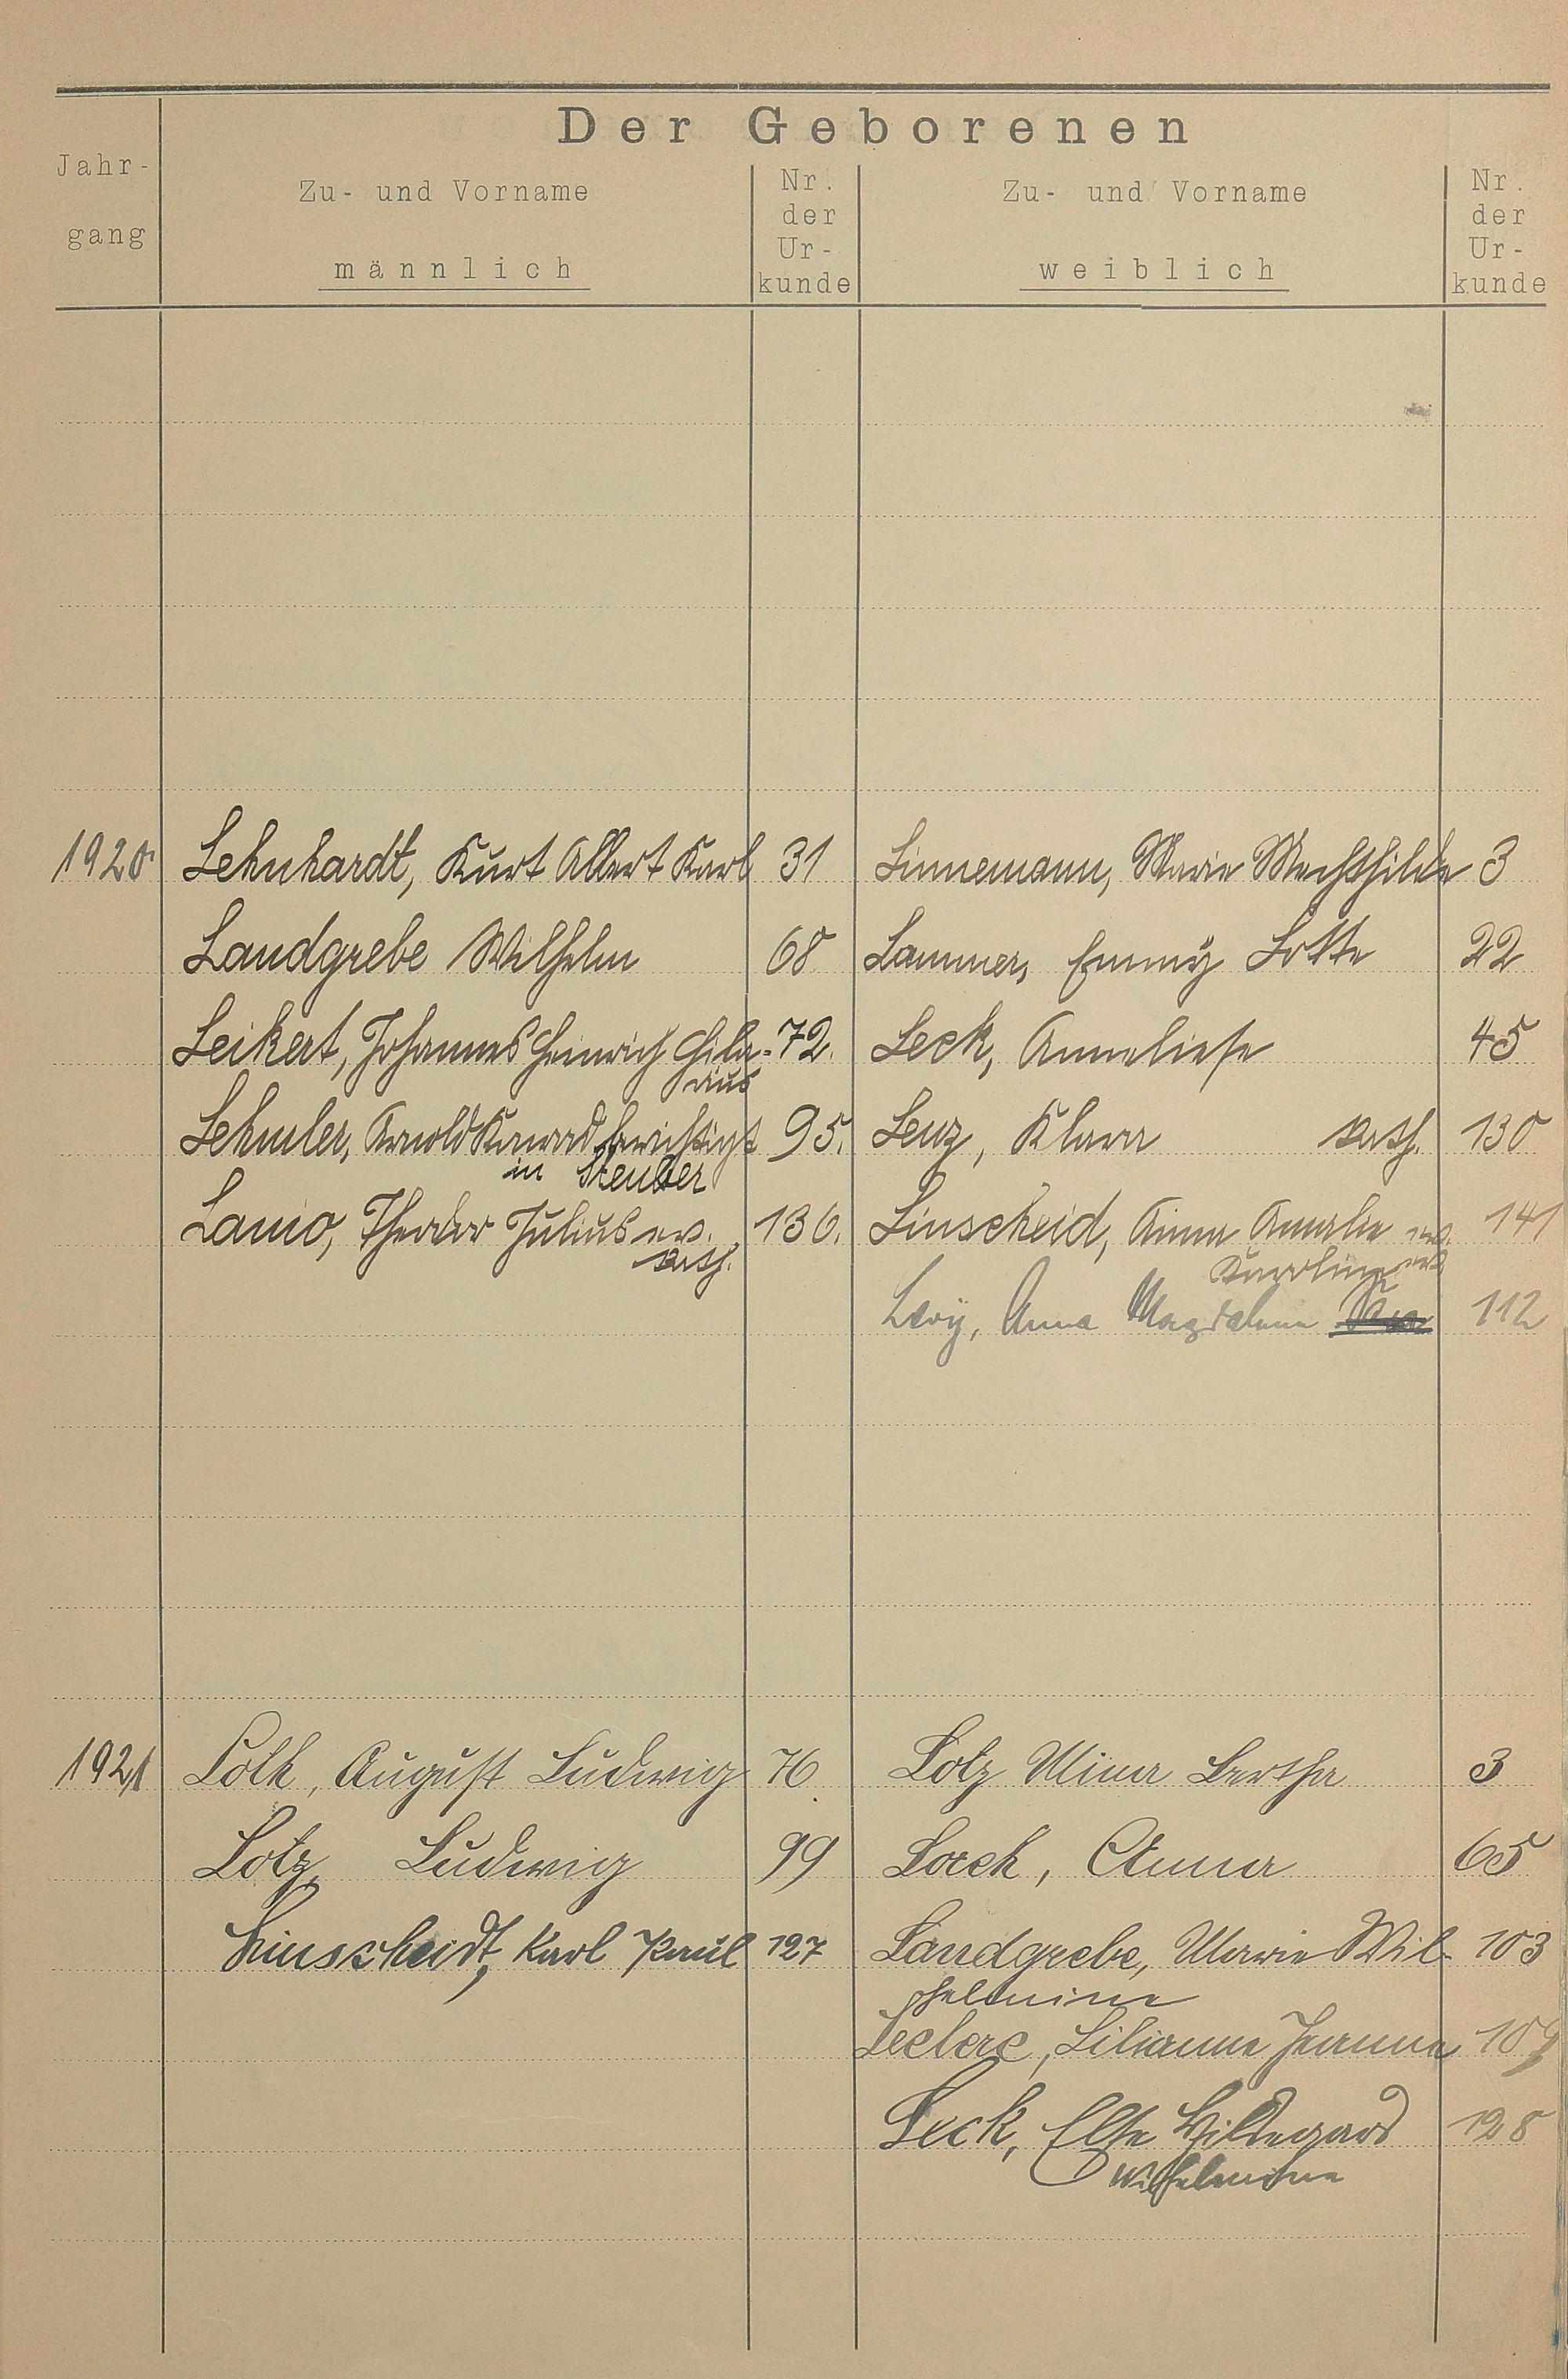 Der Geborenen
Jahr-
gang
Zu- und Vorname
männlich
Nr.
der
Ur-
kunde
Zu- und Vorname
weiblich
Nr.
der
Ur-
kunde
1920 Lehnhardt, Kurt Albert Karl 31 Linnemann, Marie Mechthilde 3
Landgrebe Wilhelm 68 Lammer, Emmy Lotte 22
Leikert, Johannes Heinrich Hila- 72. Leck, Anneliese 45
rius
Lehmler, Arnold Konrad berichtigt 95. Lenz, Klara kath. 130
in Steuber
Lamo, Theodor Julius ev. 136. Linscheid, Anna Amalie ev. 141
kath. Karoline ev.
Levy, Anna Magdalena 112
1921 Loth, August Ludwig 76 Lotz Mina Bertha 3
Lotz, Ludwig 99 Lorch, Anna 65
Linscheidt, Karl Paul 127 Landgrebe, Marie Wil- 103
helmine
Leclerc, Lilianne Jeanne 109
Leck, Else Hildegard 128
Wilhelmine